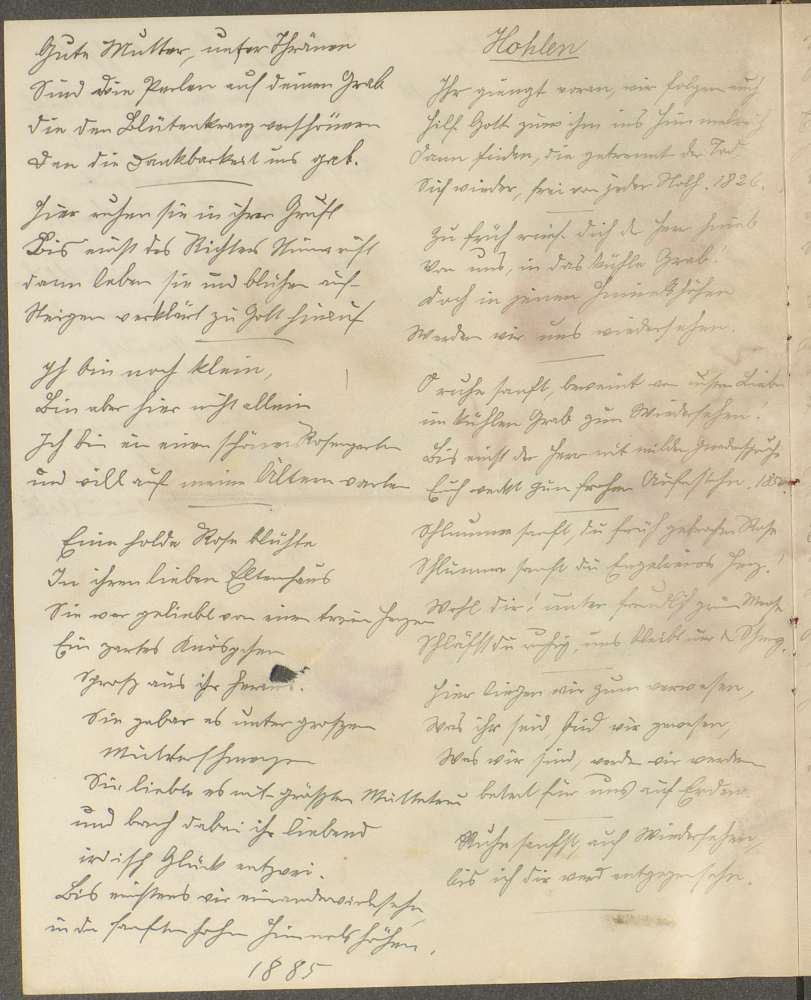 Gute Mutter, unser Thränen
Sind die Perlen auf deinem Grab
die den Blütenkranz verschönern
Den die Dankbarkeit uns gab.
Hier ruhen sie in ihrer Gruft
Bis einst des Richters Stimme ruft
dann leben sie und blühen auf
Steigen verklärt zu Gott hinauf
Ich bin noch klein,
Bin aber hier nicht allein
Ich bin in einen schönen Rosengarten
und will auf meine Ältern warten
Eine holde Rose blühte
In ihren lieben Elternhaus
Sie war geliebt von einen treuen Herzen
Ein zartes Knöspchen
Sprosz aus ihr heraus.
Sie gebar es unter groszen
Mutterschmerzen
Sie liebte es mit gröszten Muttertreu
und brach dabei ihr liebend
irdisch Glück entzwei.
Bis einstens wir einander wiedersehn
in die sanften hohen Himmelshöhen.
1885
Hohlen
Ihr gienget voran, wir folgen euch
Hilf Gott zu ihm ins Himmelreich
Dann finden, die getrennt der Tod
Sich wieder, frei von jeder Noth. 1826.
Zu früh rief dich der Herr hinab
Von uns, in das kühle Grab!
Doch in jenen Himmelshöhen
Werden wir uns wiedersehen.
O ruhe sanft, beweint von unsern Lieben
im kühlen Grab zum Wiedersehen!
Bis einst der Herr mit milden
Euch weckt zum frohen Auferstehn.
Schlummre sanft, du früh gebrochne Rose
Schlummre sanft du Engelreines Herz!
Wohl dir! unter
Schläfst du ruhig, uns bleibt nur der Schmerz.
Hier liegen wir zum verwesen,
Was ihr seid, sind wir gewesen,
Was wir sind, werdet ihr werden
betet für uns auf Erden.
Ruhe sanft, auf Wiedersehen,
bis ich dir werd entgegensehn.